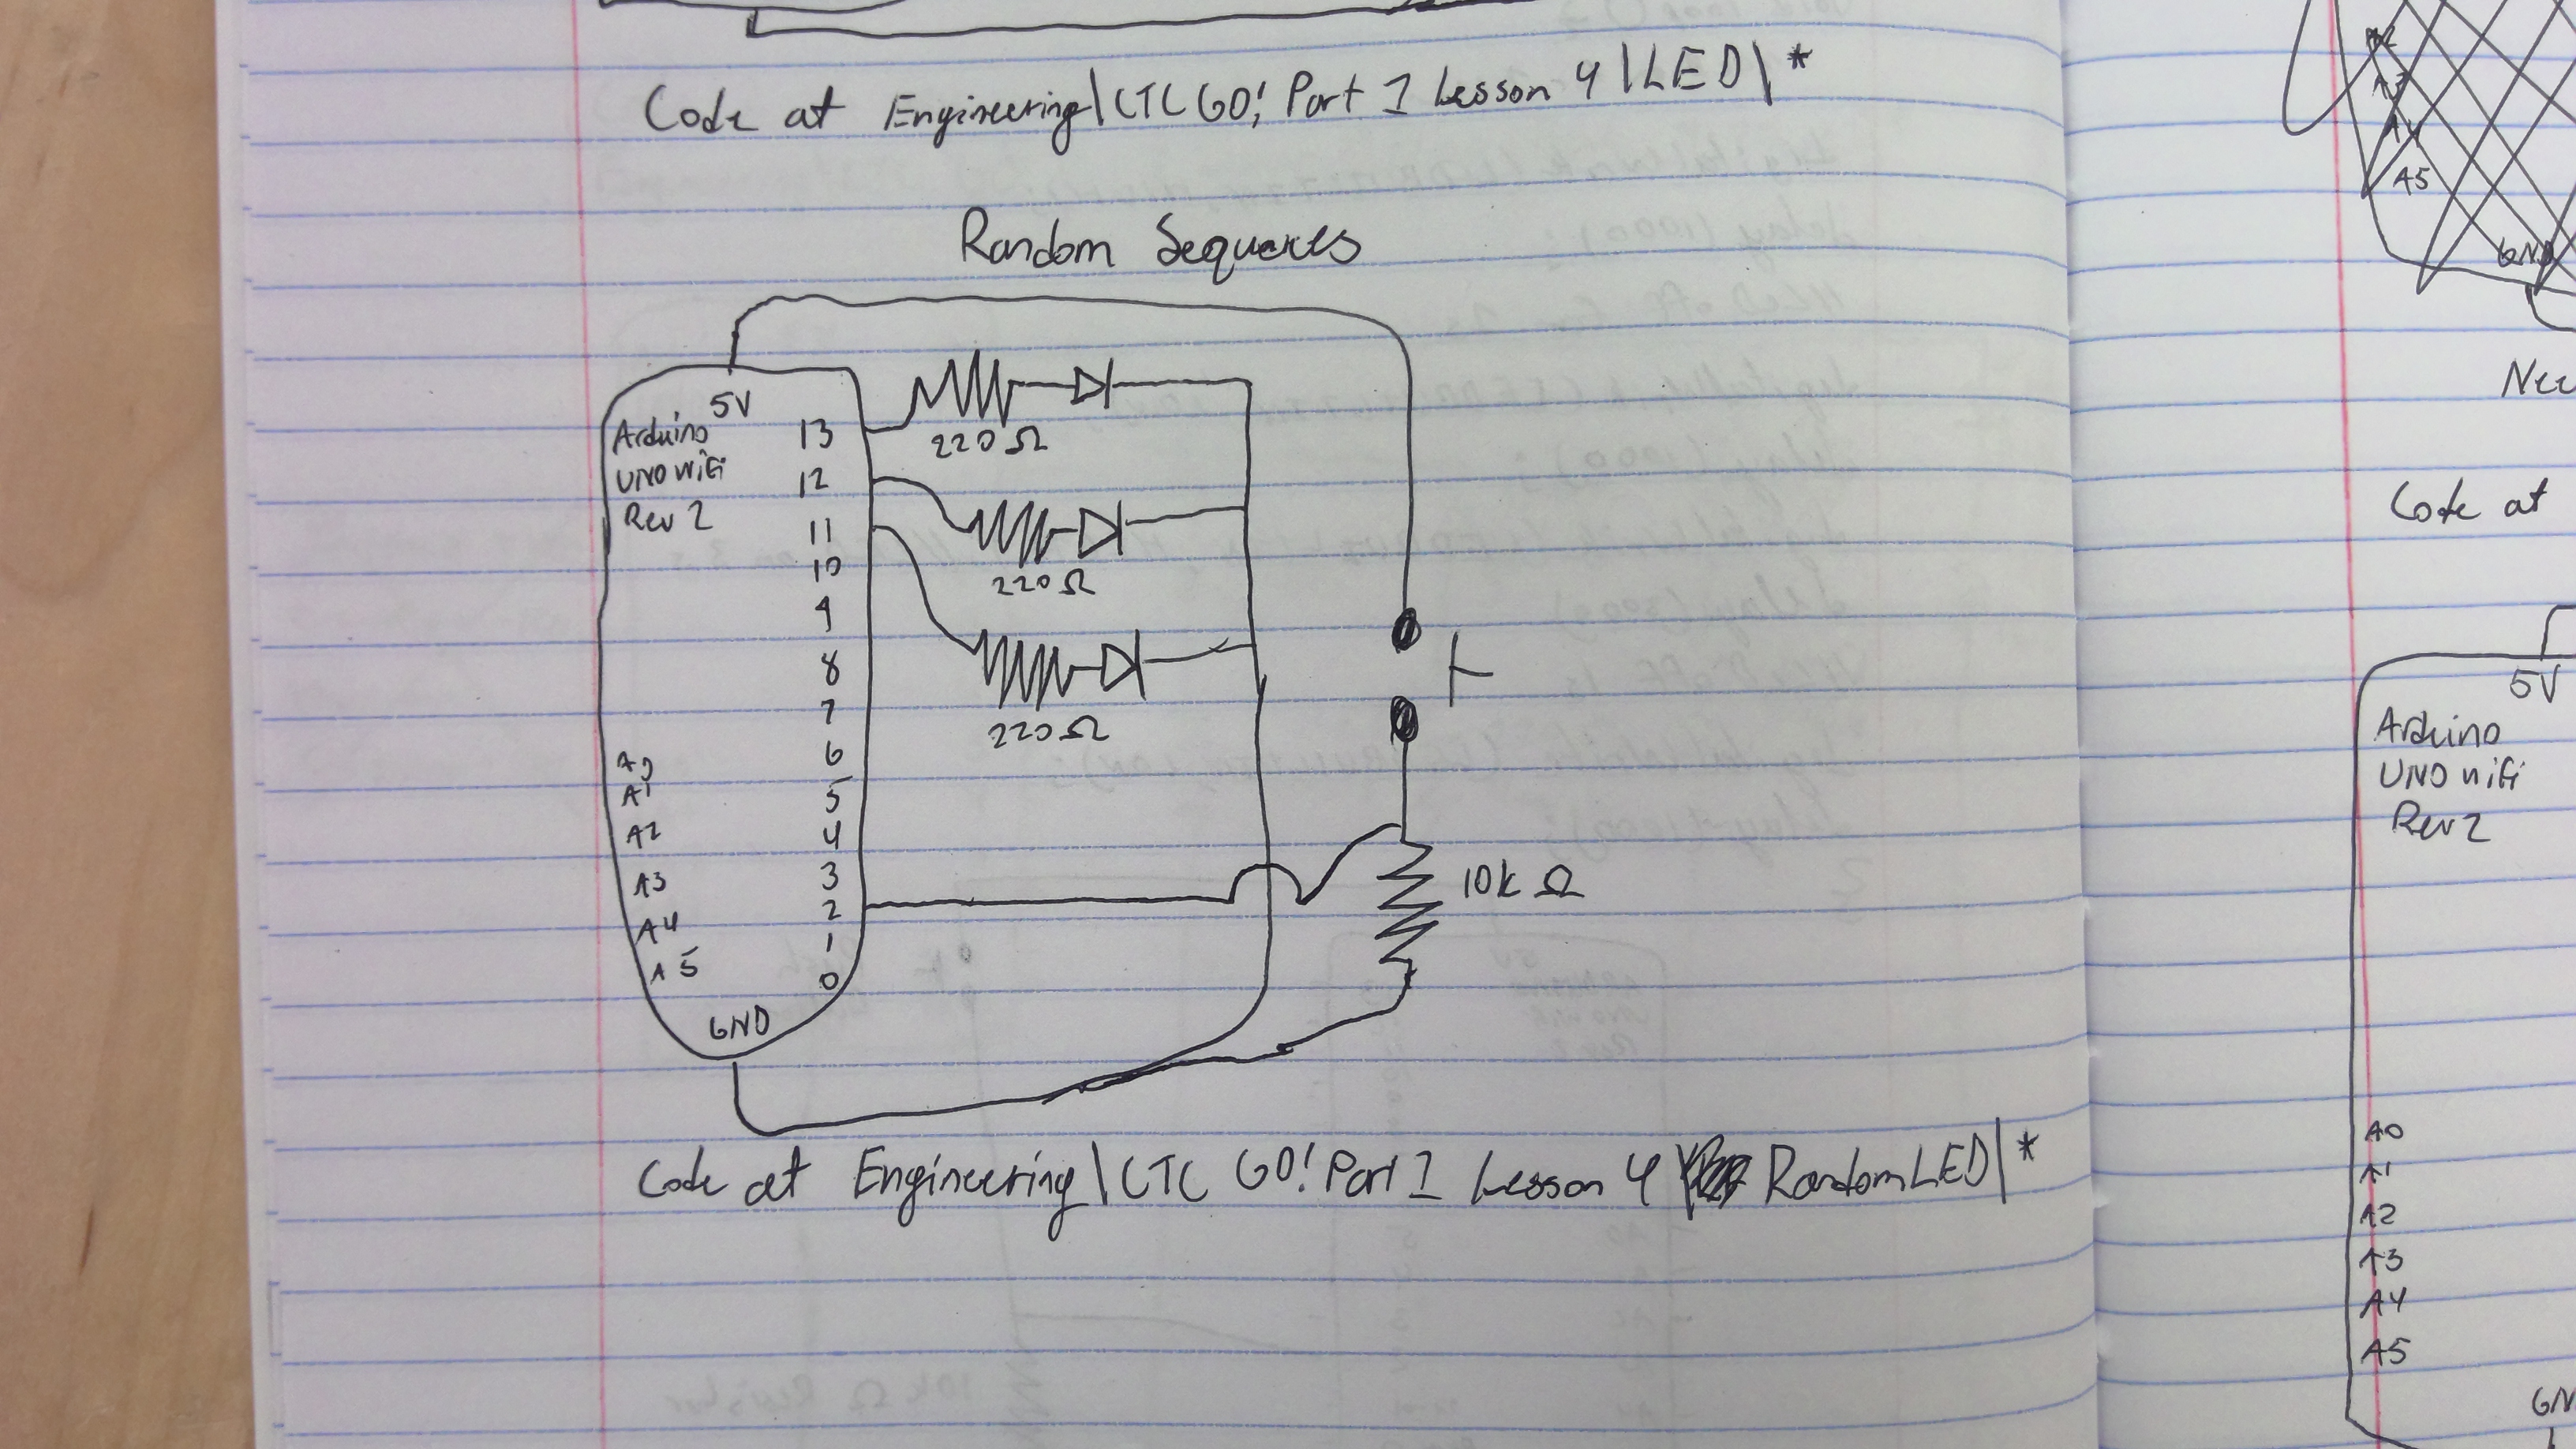 Code at Engineering\CTC GO! Part 1 Lesson 4\LED\*
Random Sequences
5V
Arduino
UNO WiFi
Rev 2
13
12
11
10
9
8
7
6
5
4
3
2
1
0
A0
A1
A2
A3
A4
A5
GND
220 Ω
220 Ω
220 Ω
10k Ω
Code at Engineering\CTC GO! Part 1 Lesson 4\RandomLED\*
A5
GND
Code at
5V
Arduino
UNO WiFi
Rev 2
A0
A1
A2
A3
A4
A5